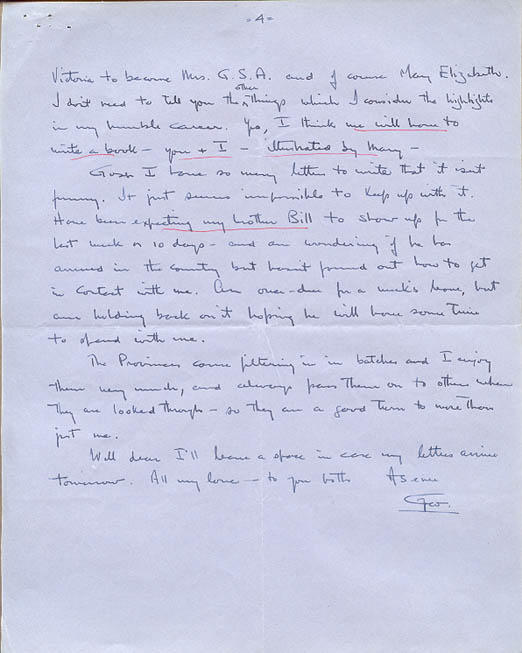 -4-
Victoria to become Mrs. G.S.A. and of course Mary Elizabeth.
I don't need to tell you the other things which I consider the highlights
in my humble career. Yes, I think we will have to
write a book - you + I - illustrated by Mary -
Gosh I have so many letters to write that it isn't
funny. It just seems impossible to keep up with it.
Have been expecting my brother Bill to show up for the
last week or 10 days - and am wondering if he has
arrived in the country but hasn't found out how to get
in contact with me. Am over-due for a week's leave, but
am holding back on it hoping he will have some time
to spend with me.
The Provinces come filtering in in batches and I enjoy
them very much, and always pass them on to others when
they are looked through - so they do a good turn to more than
just me.
Well dear I'll leave a space in case my letters arrive
tomorrow. All my love - to you both As ever
Geo.